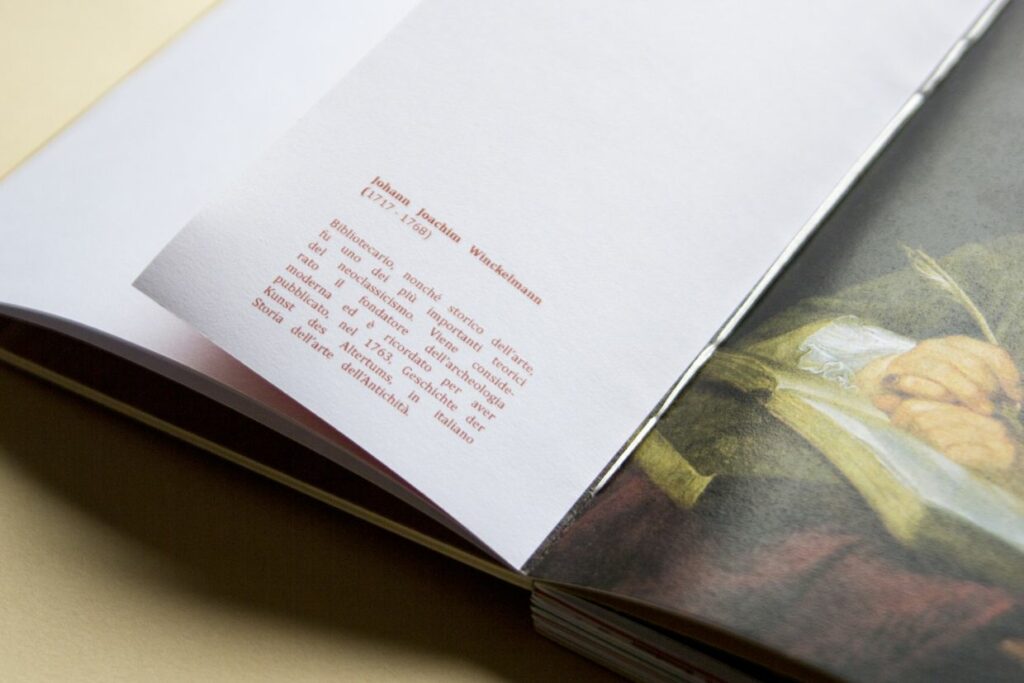 Johann Joachim Winckelmann
(1717 - 1768)
Bibliotecario, nonché storico dell'arte,
fu uno dei più importanti teorici
del neoclassicismo. Viene conside-
rato il fondatore dell'archeologia
moderna ed è ricordato per aver
pubblicato, nel 1763, Geschichte der
Kunst des Altertums, in italiano
Storia dell'arte dell'Antichità.